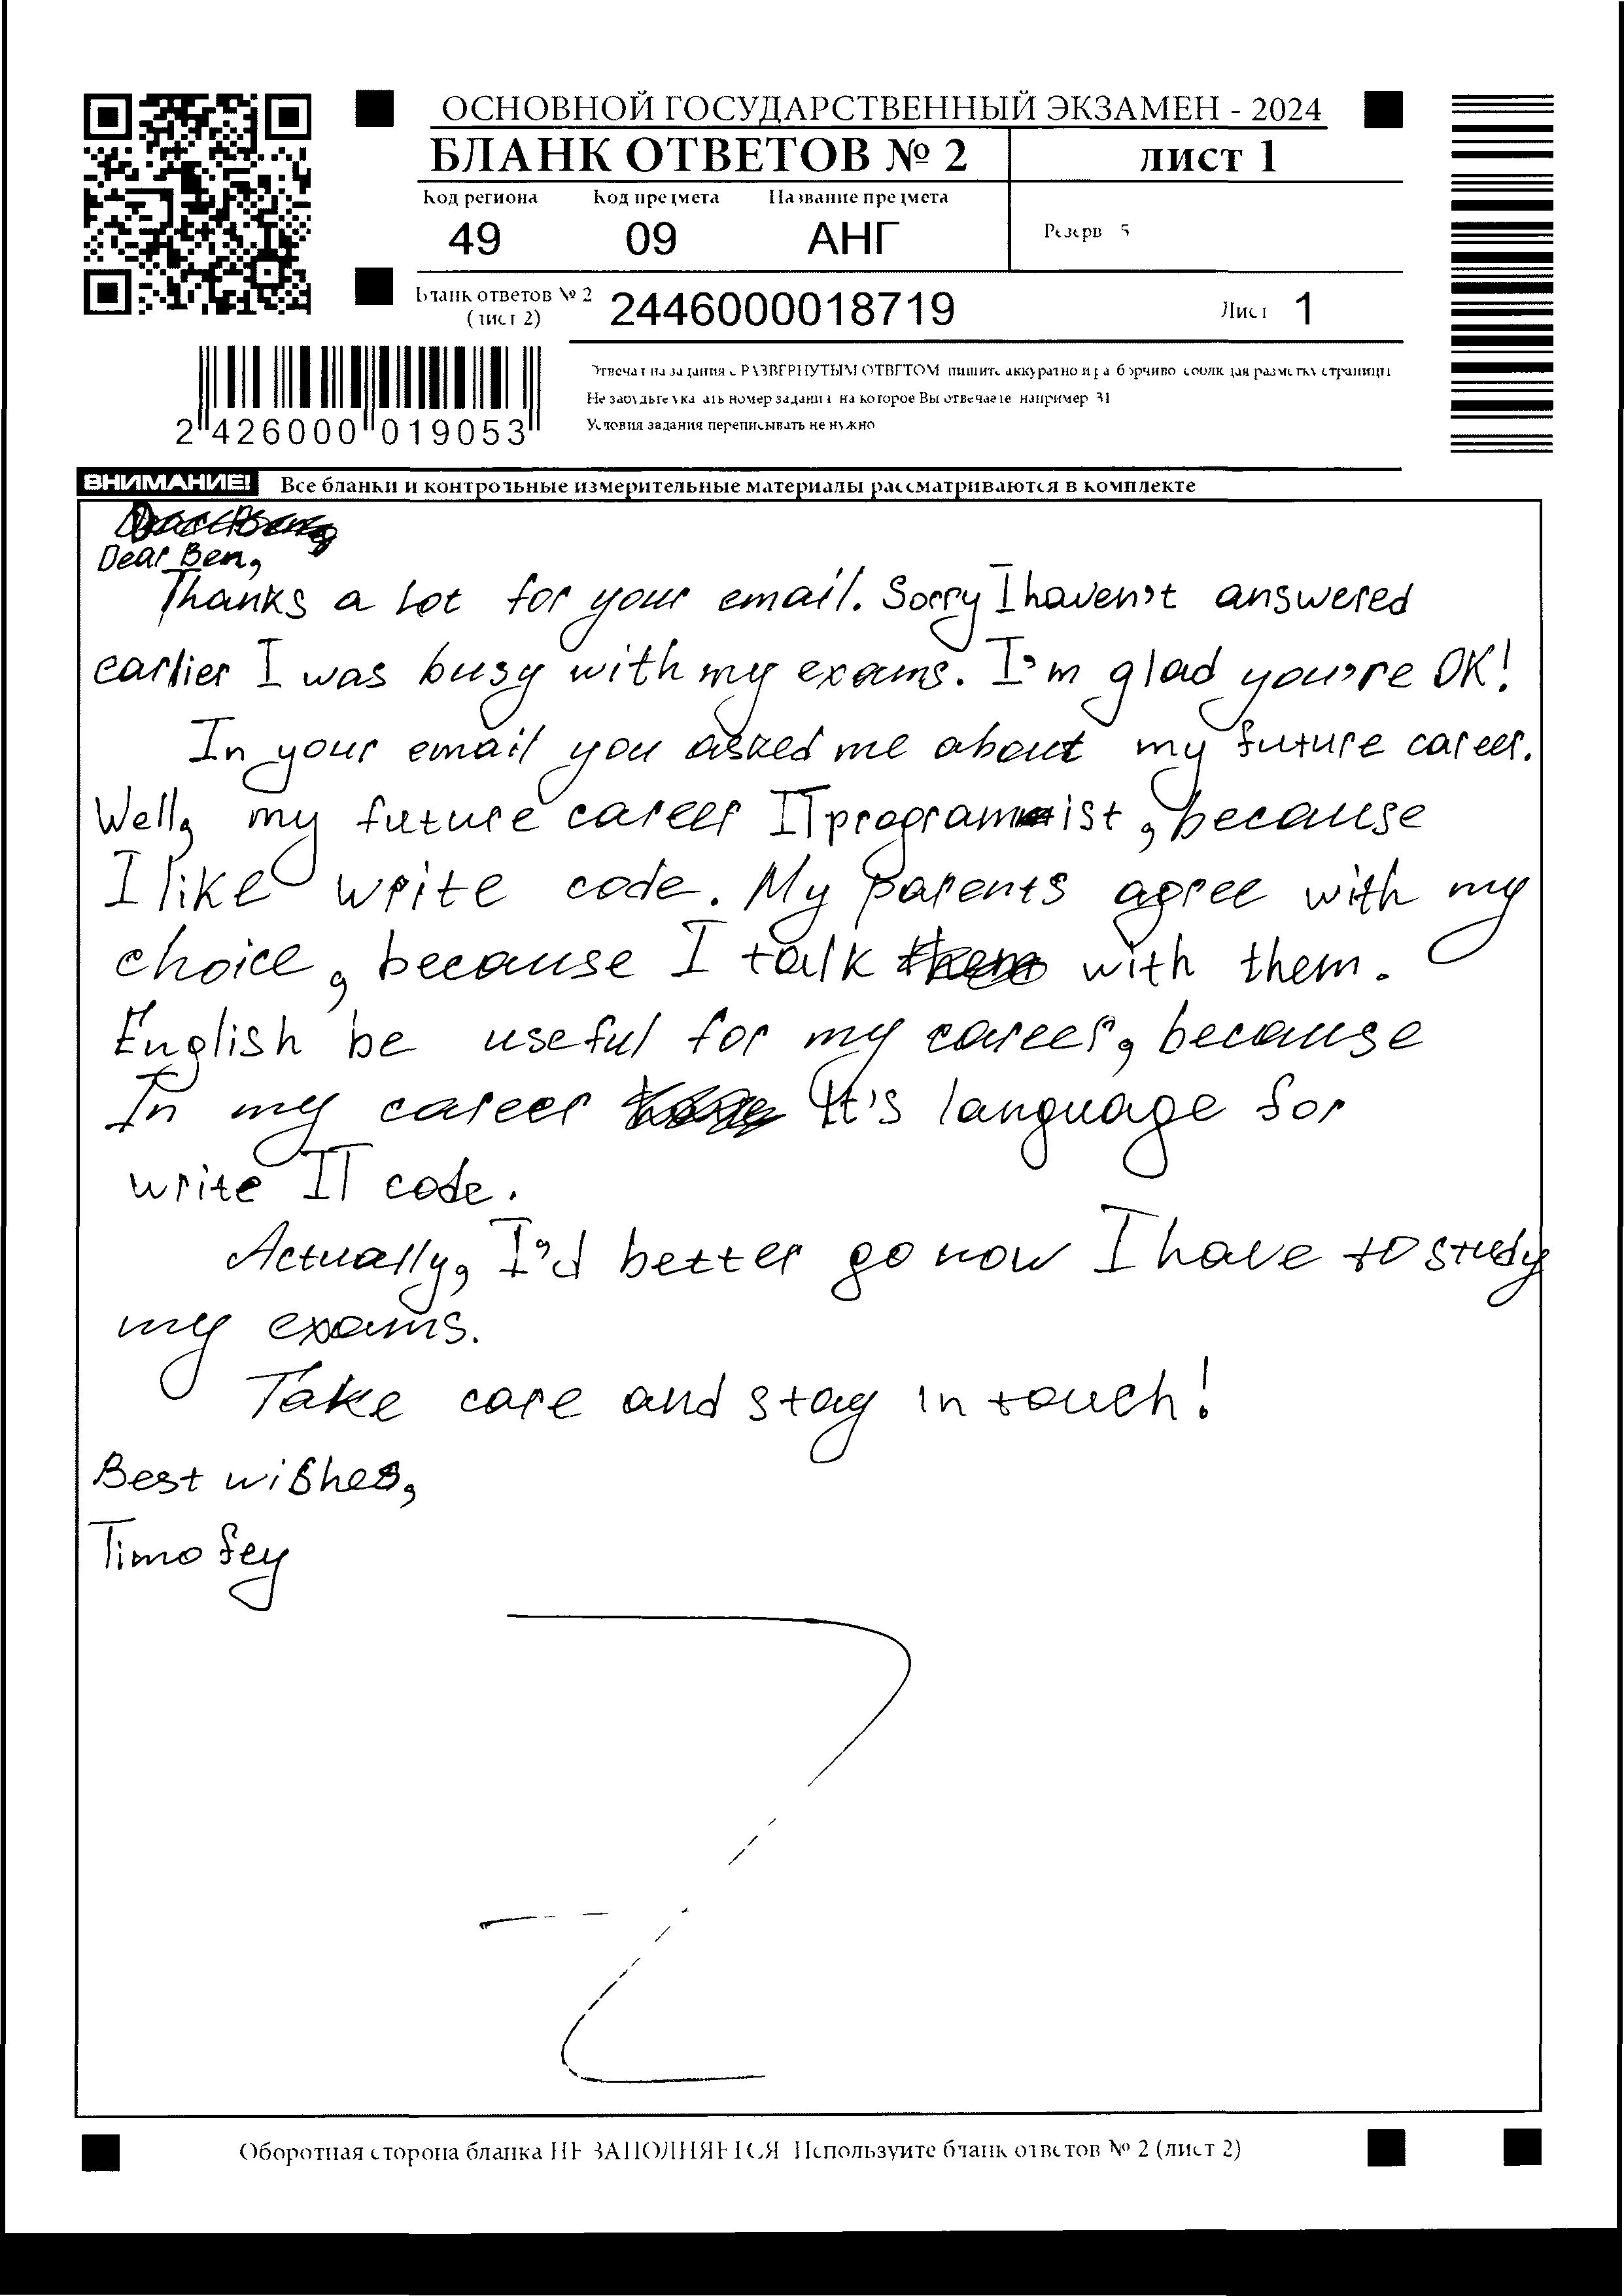 ОСНОВНОЙ ГОСУДАРСТВЕННЫЙ ЭКЗАМЕН - 2024
БЛАНК ОТВЕТОВ № 2
лист 1
Код региона
Код предмета
Название предмета
49
09
АНГ
Резерв 5
Бланк ответов № 2
(лист 2)
2446000018719
Лист 1
Отвечая на задания с РАЗВЕРНУТЫМ ОТВЕТОМ пишите аккуратно и разборчиво соблюдая разметку страницы
Не забудьте указать номер задания на которое Вы отвечаете например 31
Условия задания переписывать не нужно
2 426000 019053
ВНИМАНИЕ! Все бланки и контрольные измерительные материалы рассматриваются в комплекте
Dear Ben,
Thanks a lot for your email. Sorry I haven't answered
earlier I was busy with my exams. I'm glad you're OK!
In your email you asked me about my future career.
Well, my future career IT programmist, because
I like write code. My parents agree with my
choice, because I talk with them.
English be useful for my career, because
In my career It's language for
write IT code.
Actually, I'd better go now I have to study
my exams.
Take care and stay in touch!
Best wishes,
Timofey
Оборотная сторона бланка НЕ ЗАПОЛНЯЕТСЯ Используите бланк ответов № 2 (лист 2)